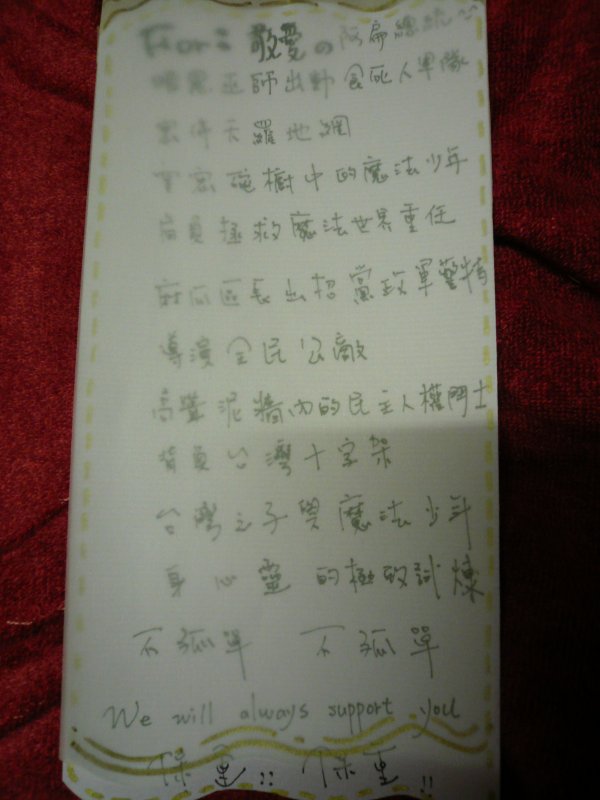 For: 敬愛の阿扁總統
暗黑巫師出動食死人軍隊
天羅地網
牢樹中的魔法少年
肩負拯救魔法世界重任
麻瓜區長出招黨政軍警特
導演全民公敵
高聳泥牆內的民主人權鬥士
背負台灣十字架
台灣之子與魔法少年
身心靈的極致試煉
不孤單 不孤單
We will always support you
保重:: 保重::